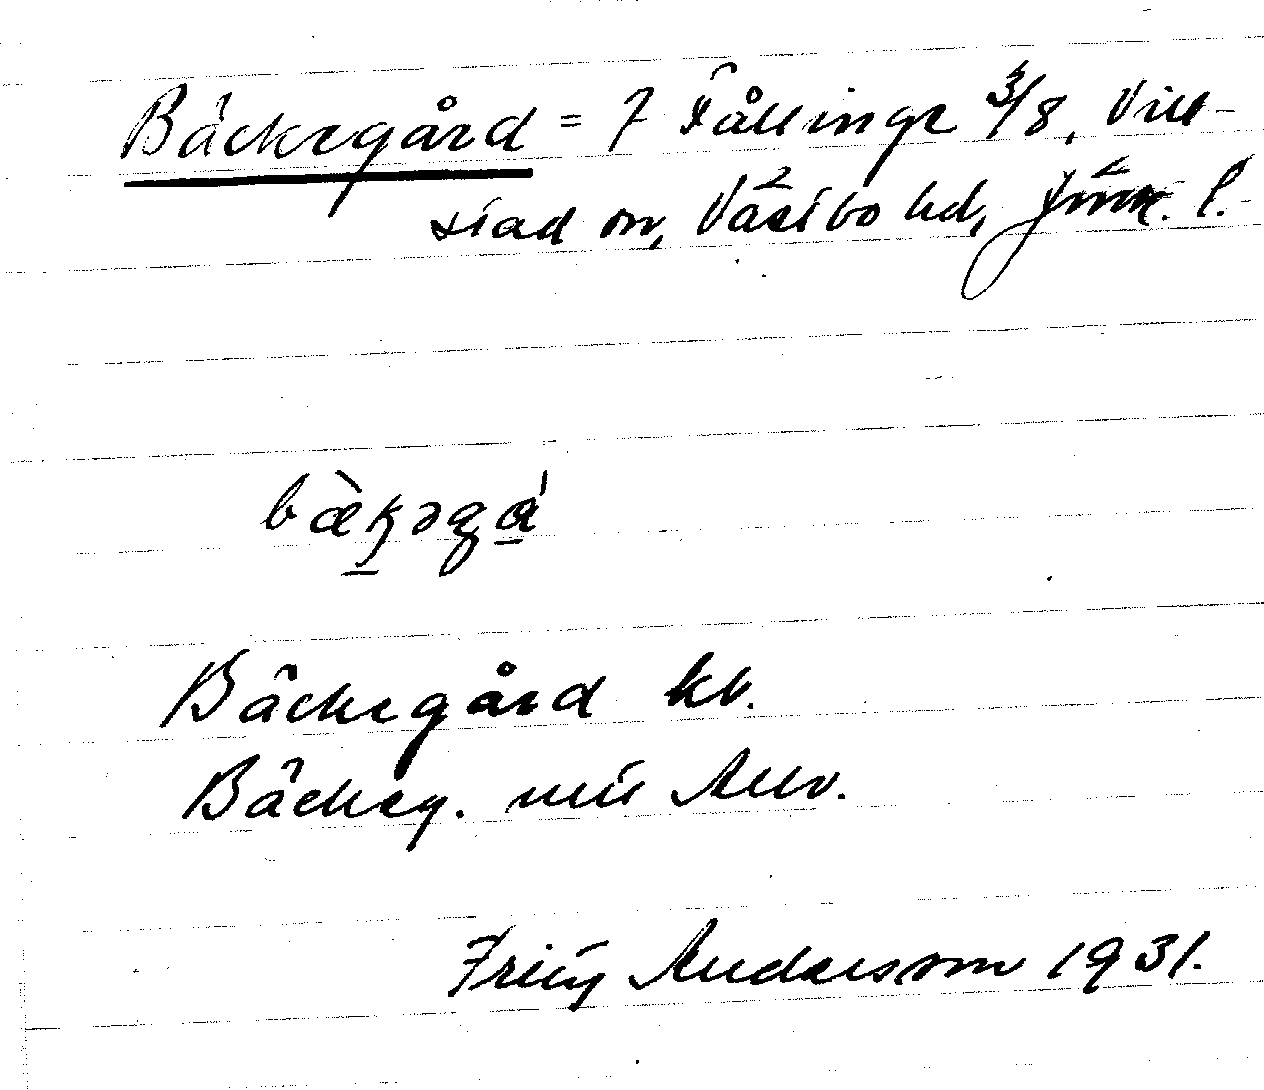 Bäckegård = i Fållinge 3/8, Vill-
stad sn, Västbo hd, Jönk. l.
bæ̀kəgá
Bäckegård kb.
Bäckeg. utt
Fritz Andersson 1931.